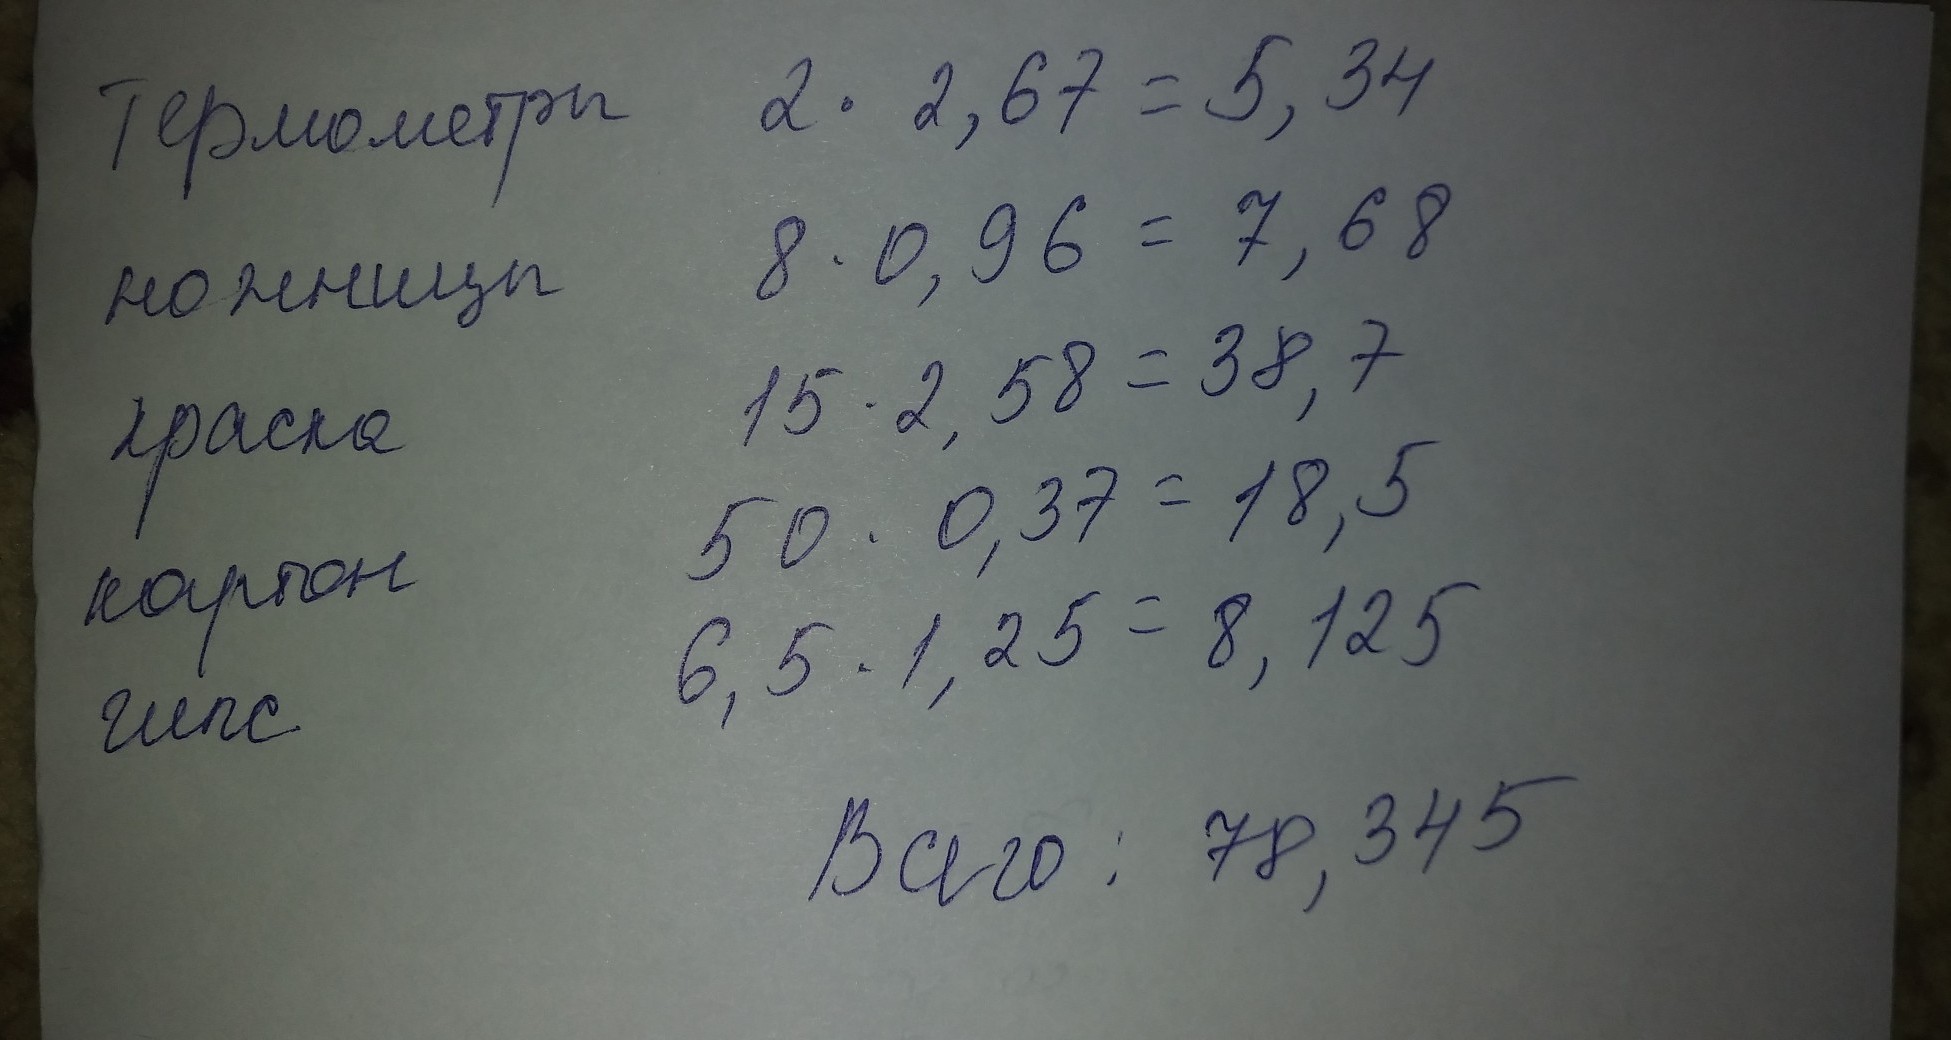 Термометры 2 · 2,67 = 5,34
ножницы 8 · 0,96 = 7,68
краска 15 · 2,58 = 38,7
картон 50 · 0,37 = 18,5
гипс 6,5 · 1,25 = 8,125
Всего: 78,345